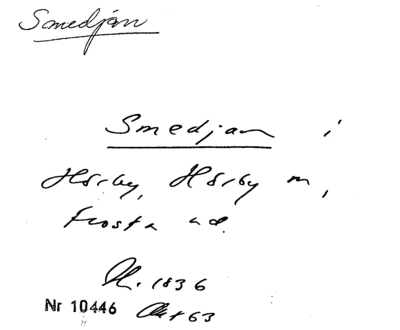 Smedjan
Smedjan i
Hörby, Hörby m,
Frosta hd.
1836
Nr 10446 63